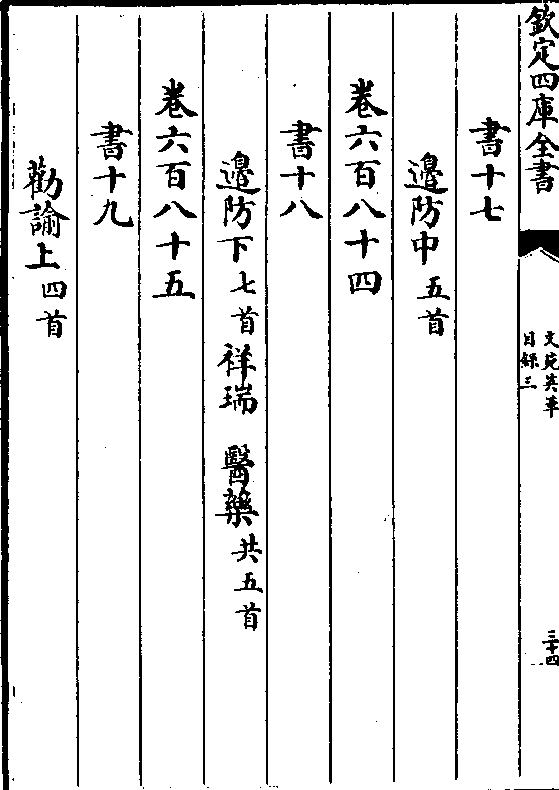 欽定四庫全書
文苑英華
目録三
三十四
書十七
邉防中五首
卷六百八十四
書十八
邉防下七首祥瑞 醫藥共五首
卷六百八十五
書十九
勸諭上四首